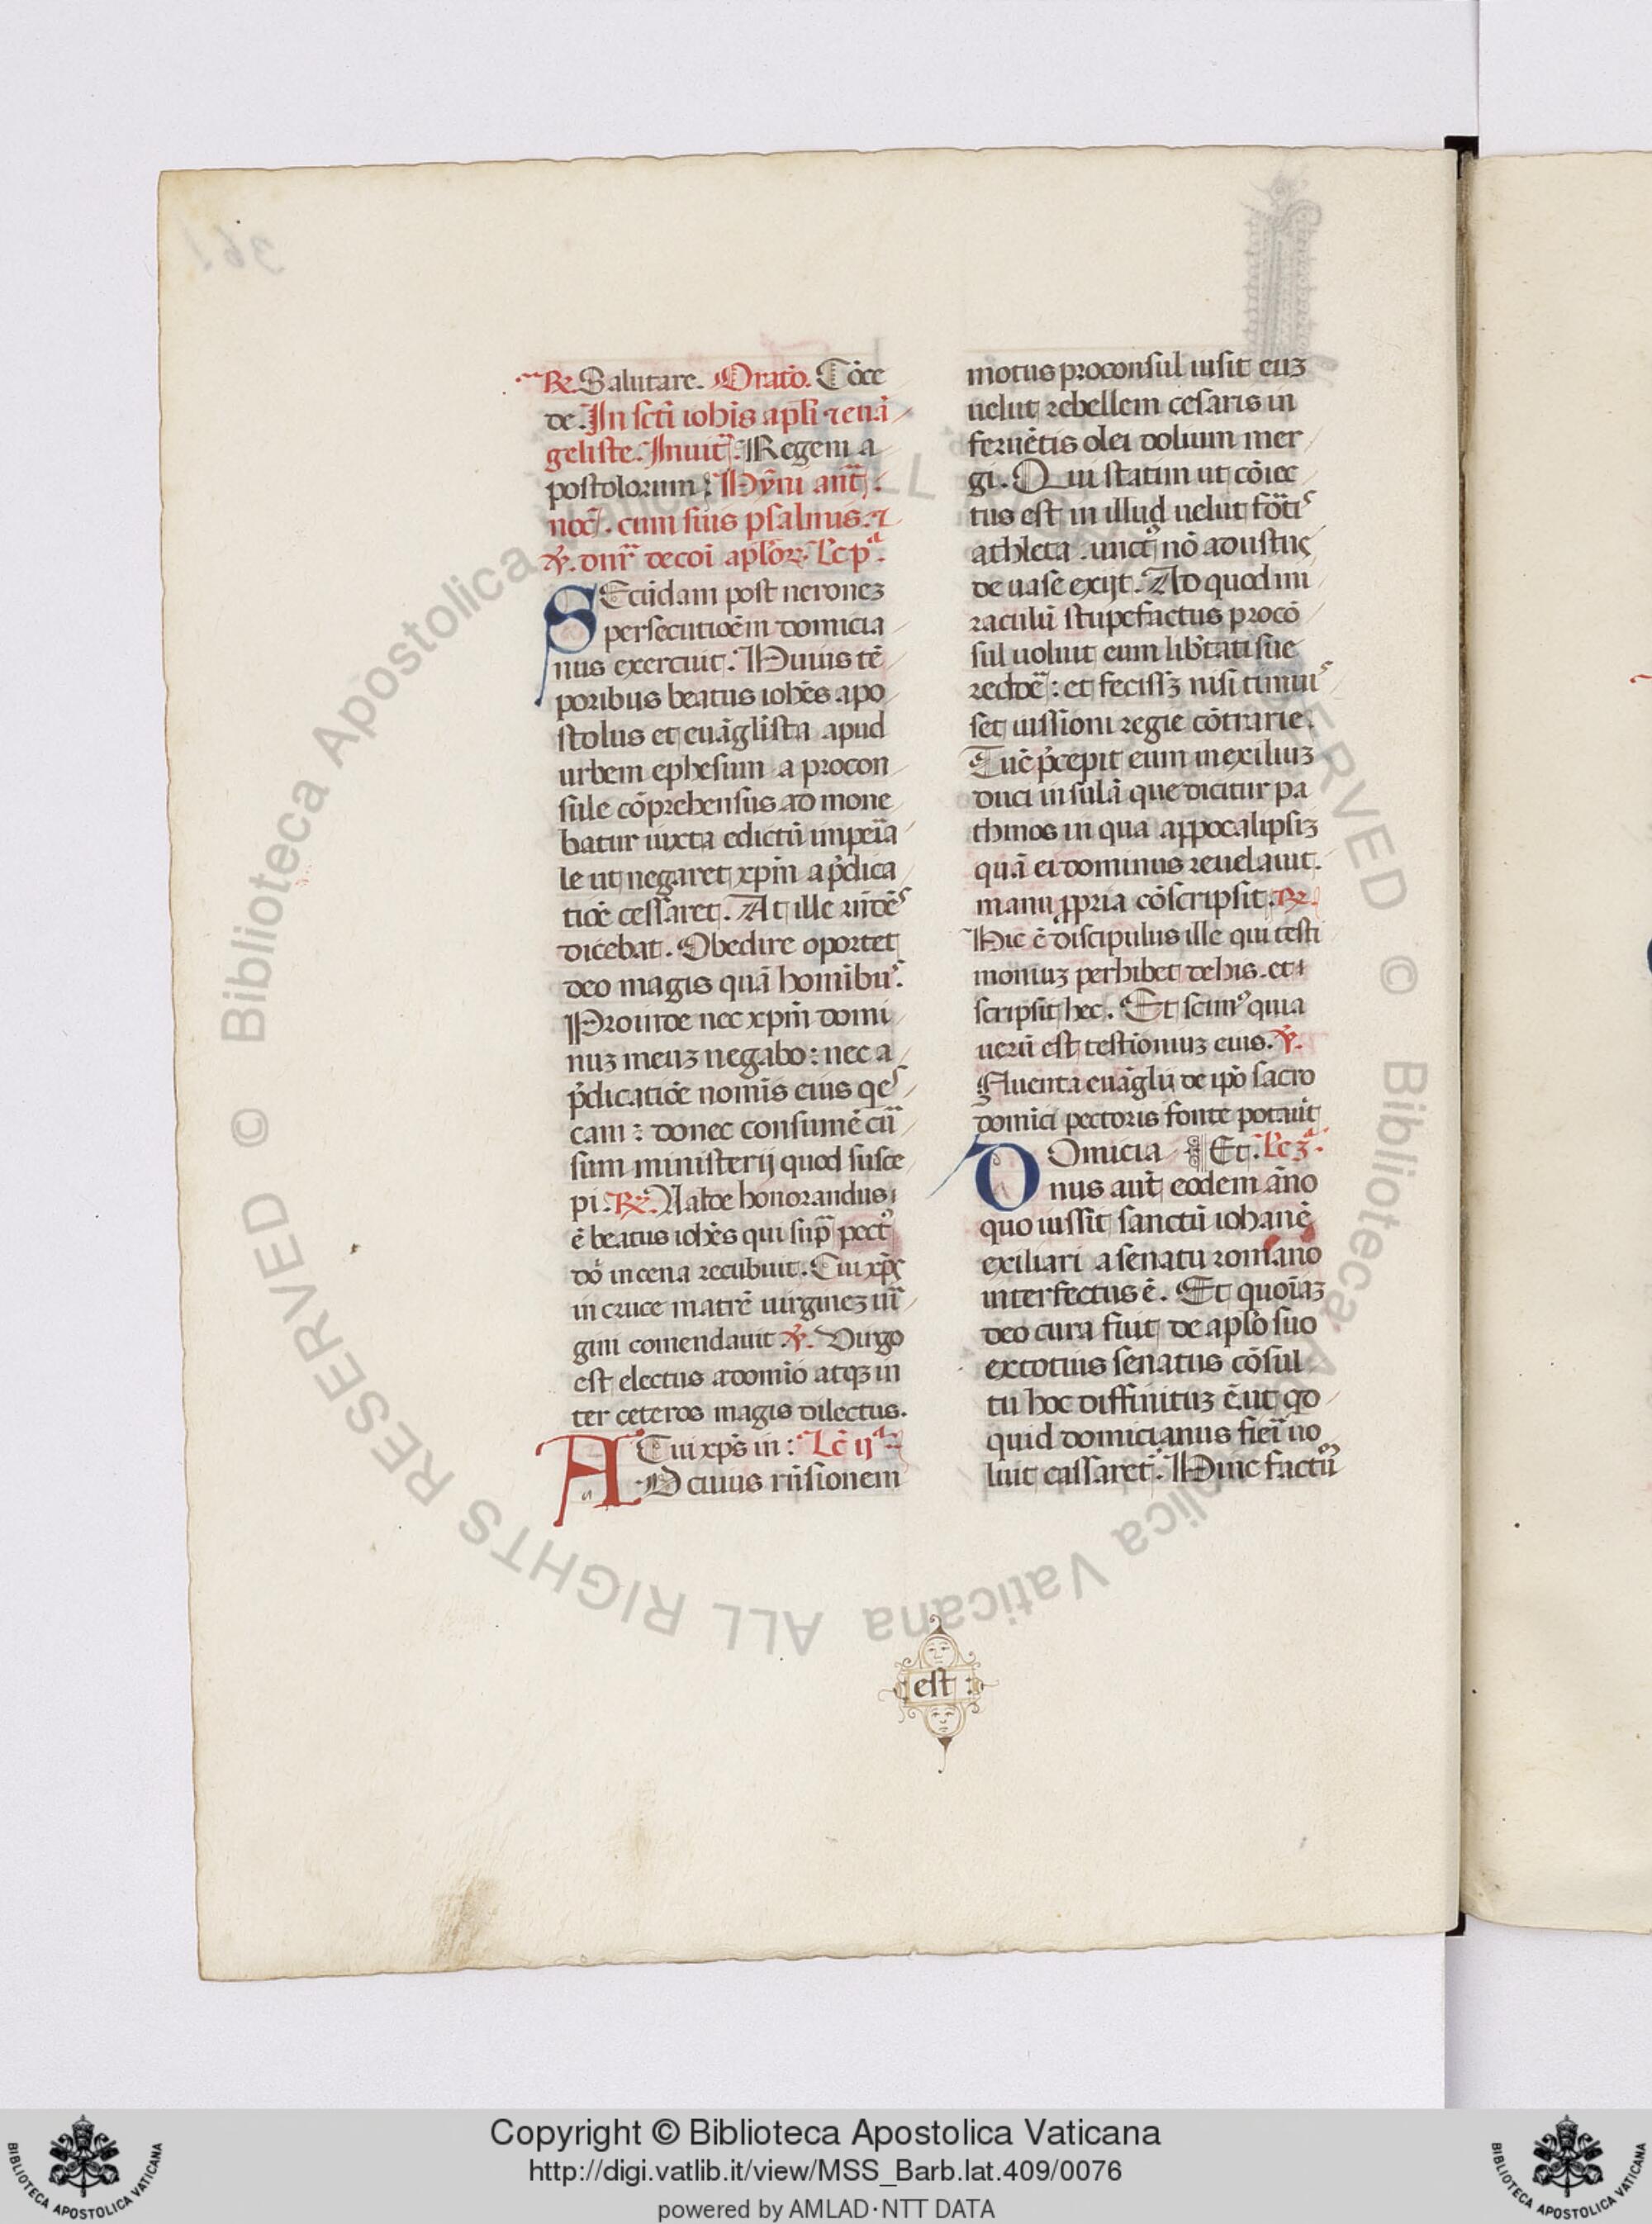 ℞. Salutare. Oratio. Cōce
de. In scti iohīs apli ⁊ euā
geliste. Inuit. Regem a
postolorum: Hȳni ant.
noct. cum suis psalmis. ⁊
℣. dnr de coī aplor. Lc pᵃ.
SEcūdam post neronez
persecutiōem domicia
nus exercuit. Huius tē
poribus beatus iohēs apo
stolus et euāglista apud
urbem ephesum a procon
sule cōprehensus ad mone
batur iuxta edictū imperia
le ut negaret xpm̄ a p̄dica
tiōe cessaret. At ille rn̄dēs
dicebat. Obedire oportet
deo magis quā homībus.
Proinde nec xpm̄ domi
nuz meuz negabo: nec a
p̄dicatiōe nomīs eius qes
cam: donec consumē cur
sum ministerij quod susce
pi. ℞. Ualde honorandus
ē beatus iohēs qui sup pectus
dō in cena recubuit. Cui xp̄s
in cruce matrē uirginez uir
gini comendauit. ℣. Uirgo
est electus a domīo atqz in
ter ceteros magis dilectus.
Cui xp̄s in: Lc̄ ijᵃ
AD cuius uisionem
motus proconsul iusit euz
uelut rebellem cesaris in
feruētis olei dolium mer
gi. Qui statim ut cōiec
tus est in illud uelut fortis
athleta unctus nō adustus
de uase exijt. Ad quod mi
raculū stupefactus procō
sul uoluit eum libtati sue
reddoē: et fecissz nisi timuis
set iussioni regie cōtrarie.
Tūc p̄cepit eum in exiliuz
duci in sulā que dicitur pa
thmos in qua appocalipsiz
quā ei dominus reuelauit.
manu ꝓpria cōscripsit. ℞.
Hic ē discipulus ille qui testi
moniuz perhibet de his. et
scripsit hec. Et scimꝰ quia
uerū est testiōniuz eius. ℣.
Fluenta euāglii de ipō sacro
domīci pectoris fonte potauit
¶ Et. Lc 3ᵃ.
DOmicia
nus aut eodem āno
quo iussit sanctū iohanē
exiliari a senatu romano
interfectus ē. Et quoīaz
deo cura fuit de aplō suo
ex totius senatus cōsul
tu hoc diffinituz ē. ut qd
quid domicianus fieri uo
luit cassaret. Hinc factū
est:
Copyright © Biblioteca Apostolica Vaticana
http://digi.vatlib.it/view/MSS_Barb.lat.409/0076
powered by AMLAD·NTT DATA
BIBLIOTECA APOSTOLICA VATICANA
BIBLIOTECA APOSTOLICA VATICANA
© Biblioteca Apostolica Vaticana ALL RIGHTS RESERVED